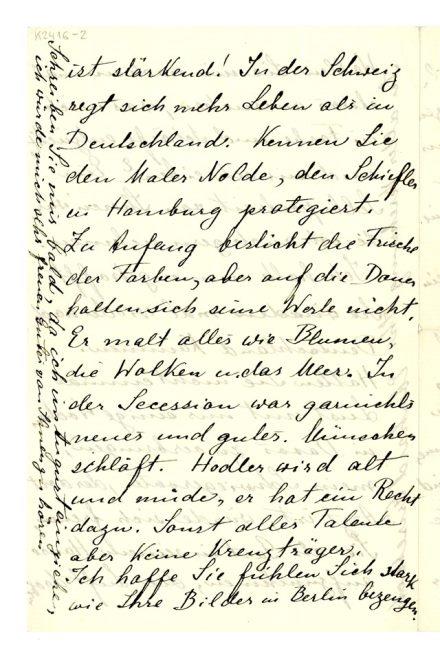 K2416-2
ist stärkend! In der Schweiz
regt sich mehr Leben als in
Deutschland. Kennen Sie
den Maler Nolde, den Schiefler
in Hamburg protegiert.
Zu Anfang besticht die Frische
der Farben, aber auf die Dauer
halten sich seine Werke nicht.
Er malt alles wie Blumen,
die Wolken u. das Meer. In
der Secession war garnichts
neues und gutes. München
schläft. Hodler wird alt
und müde, er hat ein Recht
dazu. Sonst alles Talente
aber keine Kreuzträger.
Ich hoffe Sie fühlen Sich stark
wie Ihre Bilder in Berlin bezeugen.
Schreiben Sie mir bald, da ich im August
ich würde mich sehr freuen, Gutes von Ihnen zu hören.